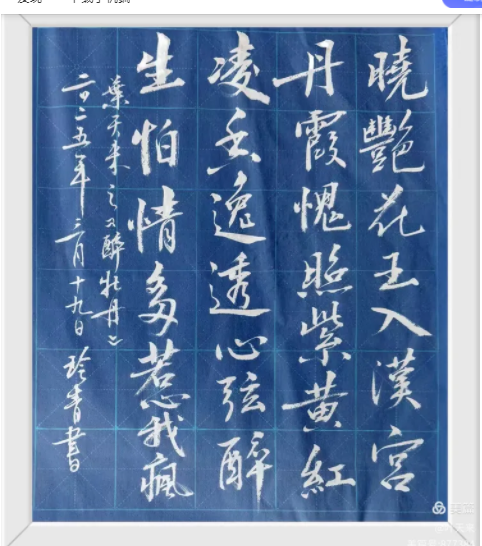 曉艷花王入漢宮
丹霞愧照紫黃紅
凌香逸透心弦醉
生怕情多惹我瘋
葉天來之《醉牡丹》
二〇二五年三月十九日 玲青書